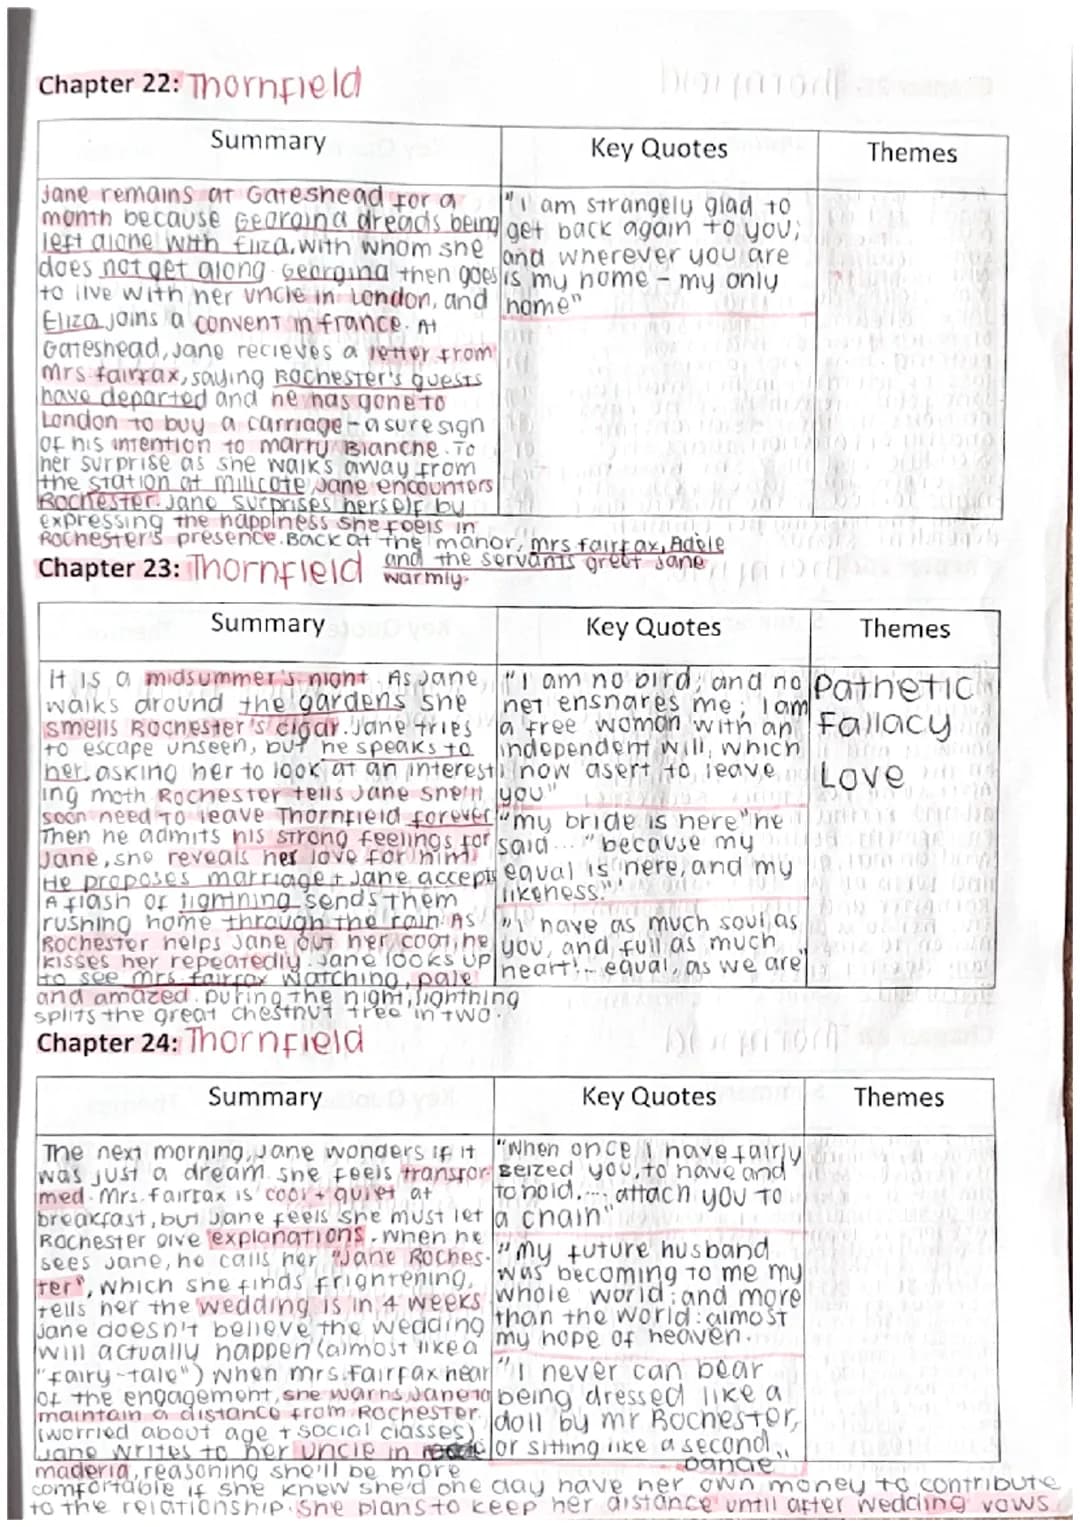 Chapter 22: Thornfield
Summary
Key Quotes
Themes
Jane remains at Gateshead for a
month because Georgina dreads being
left alone with Eliza, with whom she
does not get along. Georgina then goes
to live with her uncle in London, and
Eliza joins a convent in france. At
Gateshead, Jane recieves a letter from
Mrs fairfax, saying Rochester's guests
have departed and he has gone to
London to buy a carriage - a sure sign
of his intention to marry Blanche. To
her surprise as she walks away from
the station at millcote, Jane encounters
Rochester. Jane surprises herself by
expressing the happiness she feels in
Rochester's presence. Back at the manor, mrs fairfax, Adele
and the servants greet Jane
warmly.
"I am strangely glad to
get back again to you;
and wherever you are
is my home - my only
home"
Chapter 23: Thornfield
Summary
Key Quotes
Themes
It is a midsummer's night. As Jane
walks around the gardens she
smells Rochester's cigar. Jane tries
to escape unseen, but he speaks to
her, asking her to look at an interest
ing moth. Rochester tells Jane she'll
soon need to leave Thornfield forever
Then he admits his strong feelings for
Jane, she reveals her love for him!
He proposes marriage + Jane accepts
A flash of lightning sends them
rushing home through the rain. As
Rochester helps Jane out her coat, he
kisses her repeatedly. Jane looks up
to see Mrs. fairfax watching, pale
and amazed. During the night, lighthing
splits the great chestnut tree in two.
"I am no bird; and no
net ensnares me; I am
a free woman with an
independent will, which
I now asert to leave
you"
"my bride is here" he
said ... "because my
equal is here, and my
likeness."
"I have as much soul as
you, and full as much
heart!... equal, as we are"
Pathetic
Fallacy
Love
Chapter 24: Thornfield
Summary
Key Quotes
Themes
The next morning, Jane wonders if it
was just a dream. she feels transfor-
med. Mrs. fairfax is cool + quiet at
breakfast, but Jane feels she must let
Rochester give explanations. When he
sees Jane, he calls her "Jane Roches-
ter", which she finds frightening.
tells her the wedding is in 4 weeks
Jane doesn't believe the wedding
will actually happen (almost like a
"fairy-tale") When mrs. Fairfax hear
of the engagement, she warns Jane to
maintain a distance from Rochester
(worried about age + social classes)
Jane writes to her uncle in
maderia, reasoning she'll be more
comfortable if she knew she'd one day have her own money to contribute
to the relationship. She plans to keep her distance until after wedding vows.
"When once I have fairly
seized you, to have and
to hold... attach you to
a chain"
"my future husband
was becoming to me my
whole world: and more
than the world: almost
my hope of heaven.
"I never can bear
being dressed like a
doll by mr Rochester,
or sitting like a second
Danae"